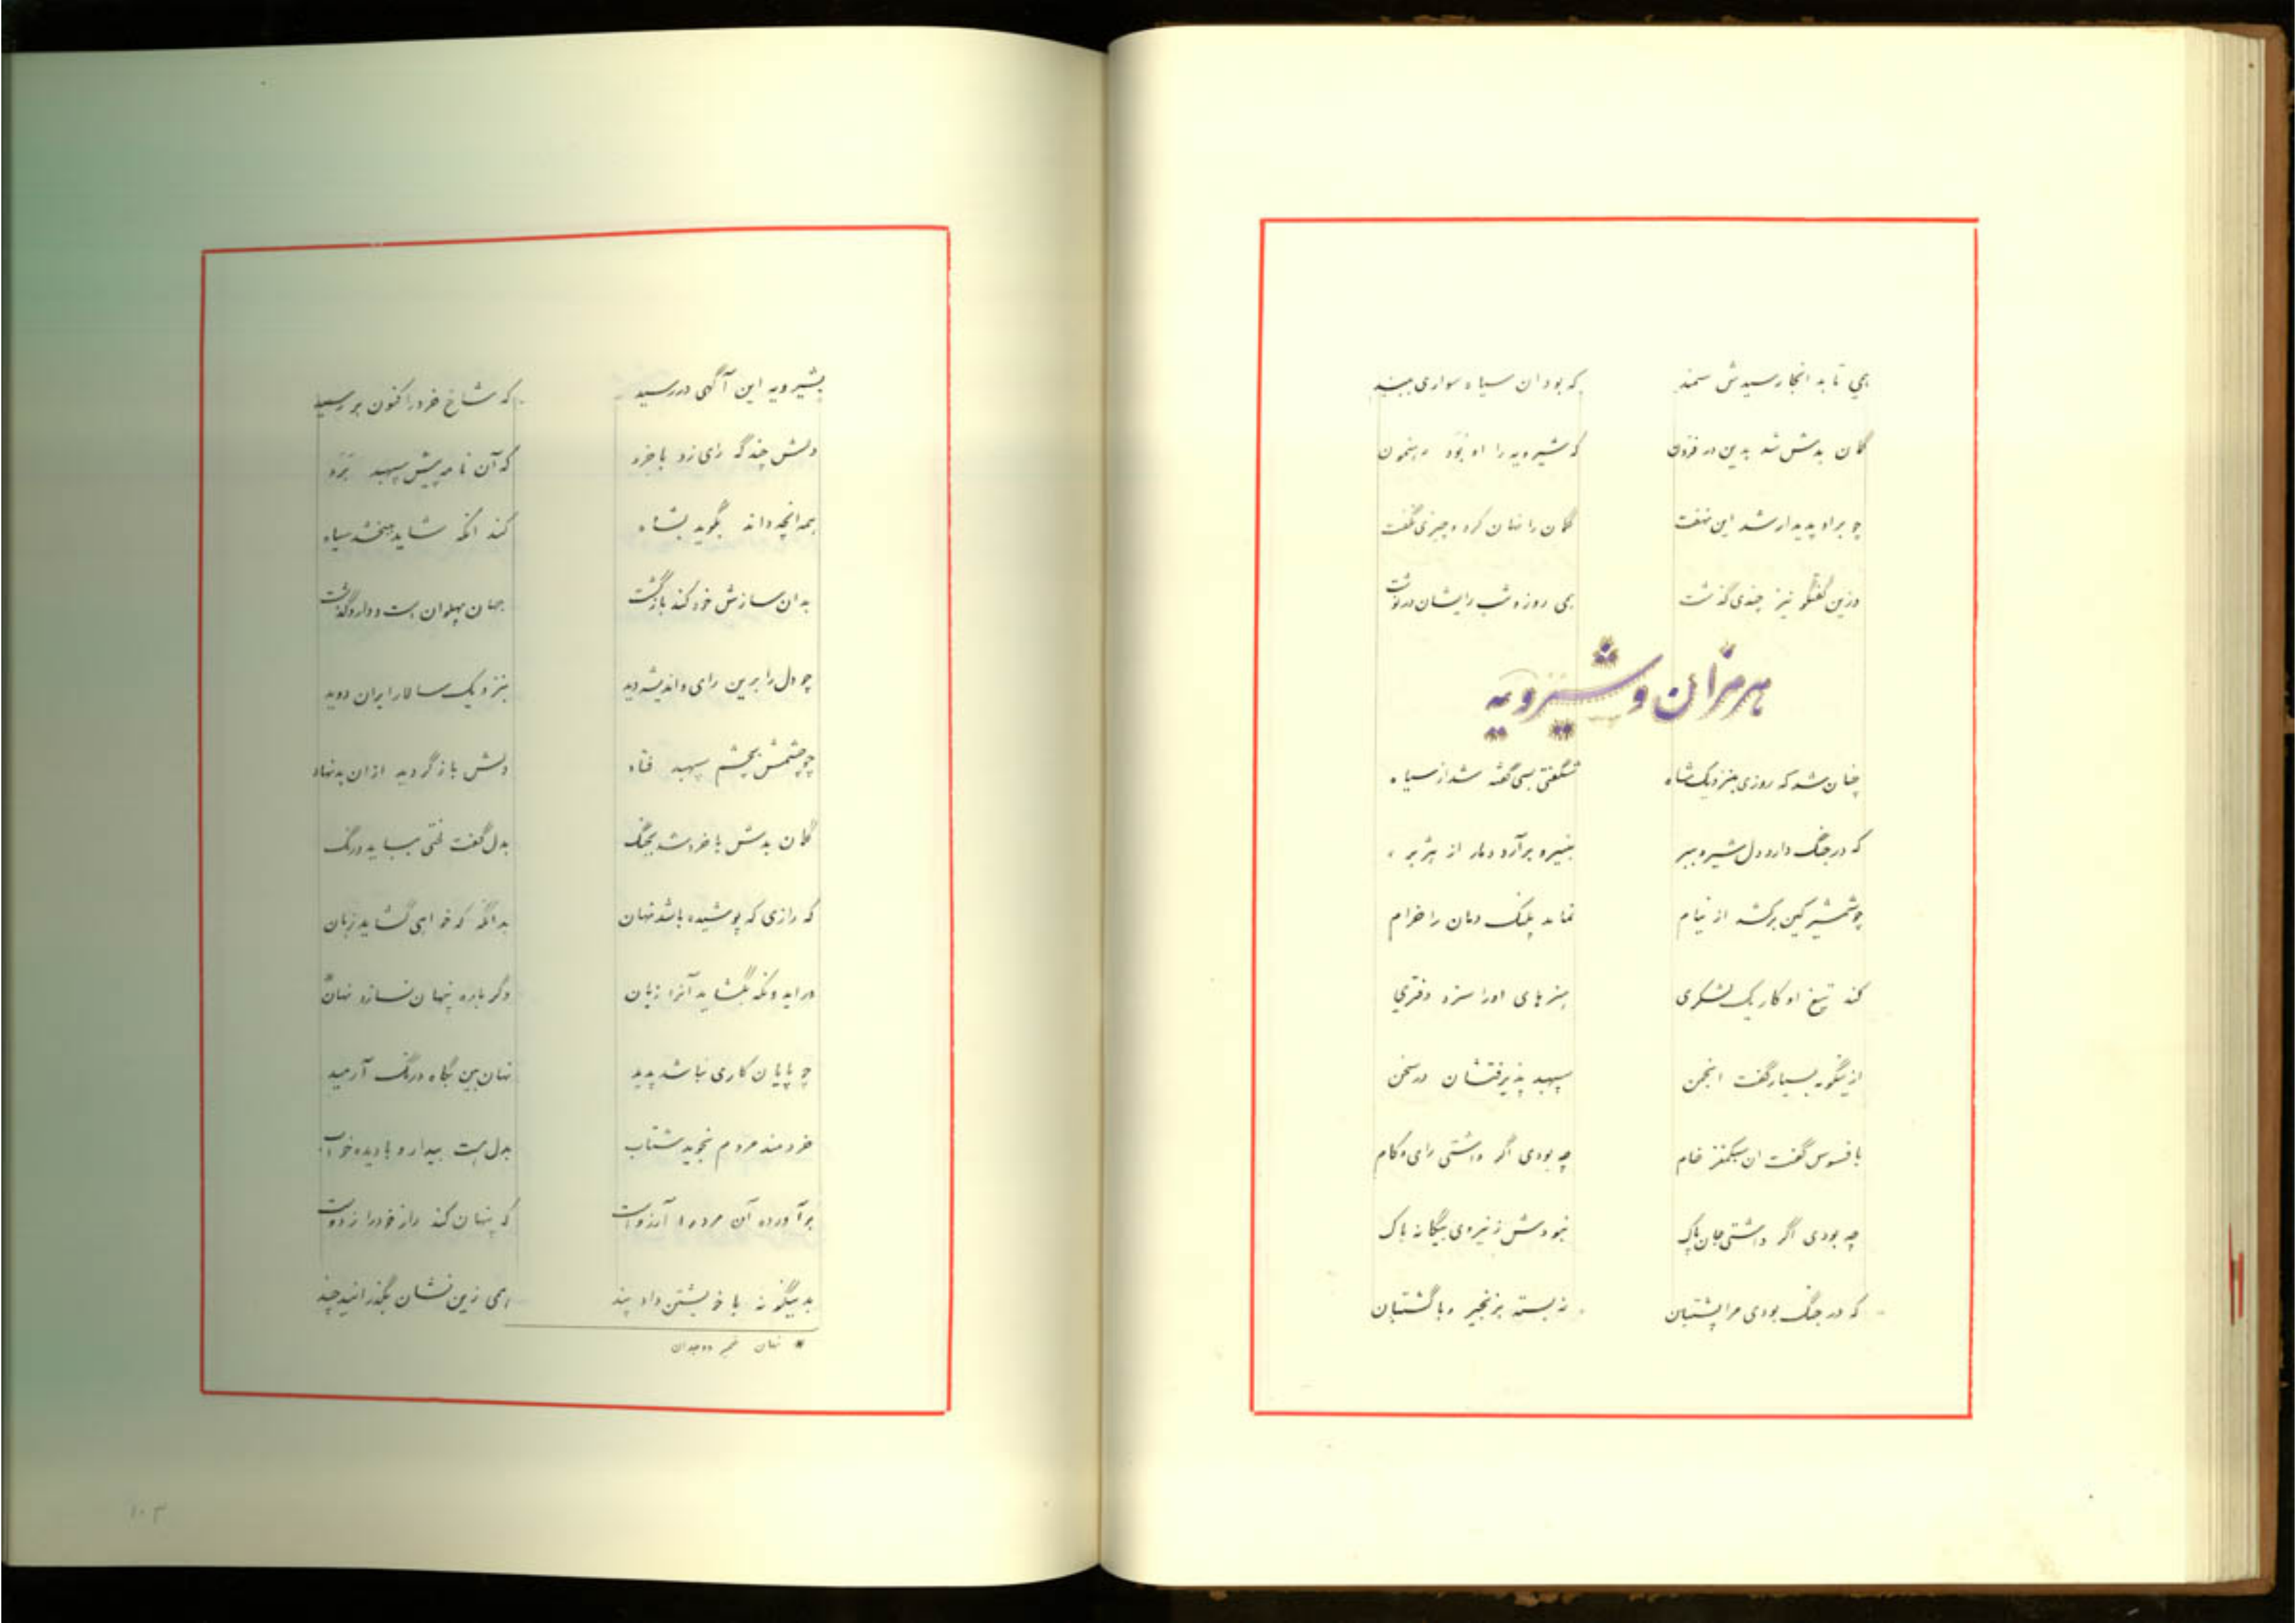 همی تا بد انجا رسیدش سمند که بود آن سیاه سواری ببند
گمان بدش شد بدین در فزون که شیرویه را او بُوَد رهنمون
چو بر او پدیدار شد این نهفت گمان را نهان کرد و چیزی نگفت
درین گفتگو نیز چندی گذشت همی روز و شب رایشان درنوشت
هرمزان و شیرویه
چنان شد که روزی بنزدیک شاه شگفتی بسی گفته شد از سیاه
که در جنگ دارد دل شیر و ببر بنیرو برآرد دمار از هژبر
چو شمشیر کین برکشد از نیام نماند پلنگ دمان را خرام
کند تیغ او کار یک لشکری هنرهای او را سزد دفتری
ازینگونه بسیار گفت انجمن سپهبد پذیرفتشان در سخن
بافسوس گفت ان سبکمغز خام چه بودی اگر داشتی رای و کام
چه بودی اگر داشتی جان پاک نبودش ز نیروی بیگانه باک
که در جنگ بودی مرا پشتبان نه بسته بزنجیر و با کشتبان
بشیرویه این آگهی در رسید که شاخ خرد را کنون بر رسید
دلش چندگه رای زد با خرد که آن نامه پیش سپهبد بَرَد
همه انچه داند بگوید بشاه کند انگه شاید ببخشد سیاه
بدان سازش خود کند بازگشت جهان پهلوان هست و دارد گذشت
چو دل را برین رای و اندیشه دید بنزدیک سالار ایران دوید
چو چشمش بچشم سپهبد فتاد دلش باز گردید ازان بدنهاد
گمان بدش با خرد شد بجنگ بدل گفت لختی بباید درنگ
که رازی که پوشیده باشد نهان بدانگه که خواهی گشاید زبان
ور ایدونکه بگشاید آنرا زبان دگر باره پنهان نسازد نهان*
چو پایان کاری نباشد پدید نهان بین بگاه درنگ آرمید
خردمند مردم نجوید شتاب بدل هست بیدار و با دیده خواب
برآورده آن مرد را آرزوست که پنهان کند راز خود را ز دوست
بدینگونه با خویشتن داد پند همی زین نشان بگذرانید چند
* نهان ضمیر و وجدان
۱۰۳